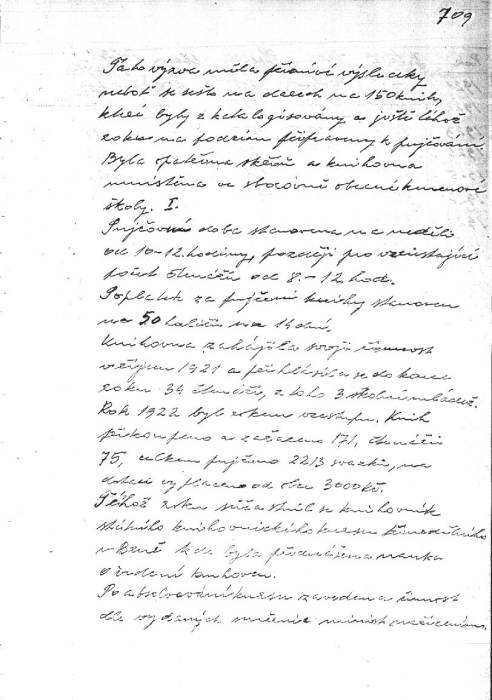 709
Tato výzva měla příznivé výsledky
neboť se sešlo na darech na 150 knih,
které byly zkatalogisovány a ještě téhož
roku na podzim připraveny k půjčování.
Byla opatřena skříň a knihovna
umístěna ve sborovně obecné kmenové
školy. I.
Půjčovní doba stanovena na neděli
od 10-12 hodiny, později pro vzrůstající
počet čtenářů od 8.-12 hod.
Poplatek za půjčení knihy stanoven
na 50 haléřů na 14 dní.
Knihovna zahájila svoji činnost
v říjnu 1921 a přihlásilo se do konce
roku 34 čtenářů, z toho 3 školní mládež.
Rok 1922 byl rokem vzestupu. Knih
přikoupeno a zařazeno 171, čtenářů
75, celkem půjčeno 2213 svazků, na
dotaci vyplaceno od obce 3000 kč.
Téhož roku súčastnil se knihovník
státního knihovnického kursu
v Brně kde byla přednášena nauka
o vedení knihoven.
Po absolvování kursu zavedena činnost
dle vydaných směrnic minist. nařízením.